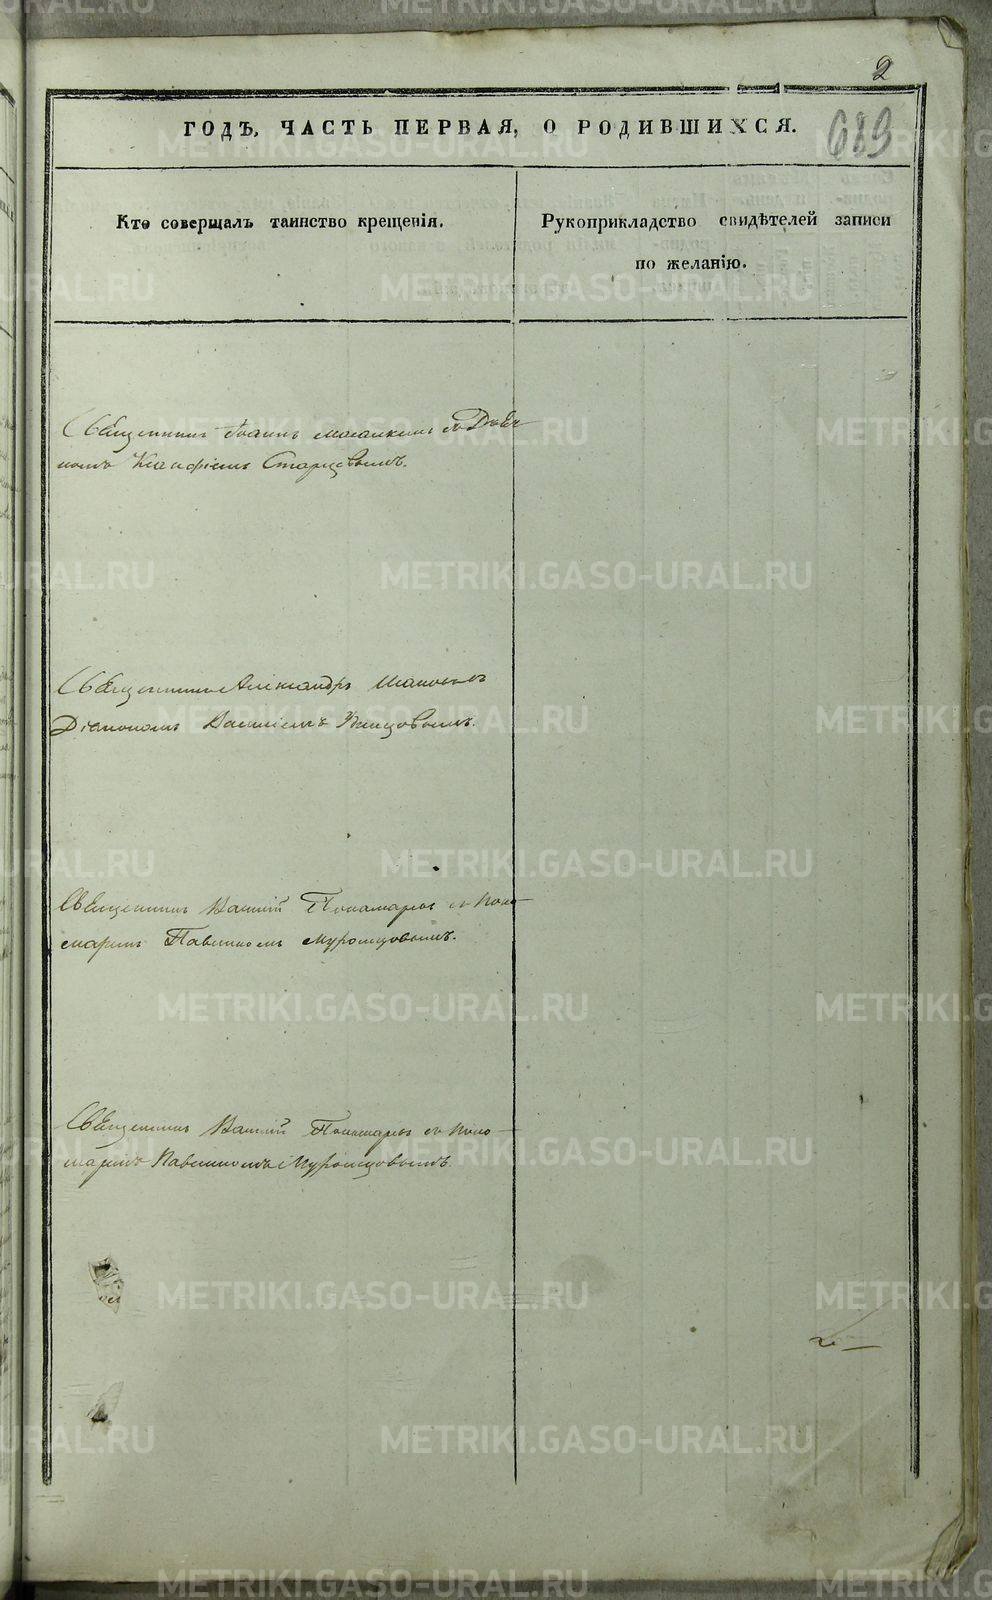 2
689
ГОДЪ, ЧАСТЬ ПЕРВАЯ, О РОДИВШИХСЯ.
Кто совершалъ таинство крещенія.
Рукоприкладство свидѣтелей записи
по желанію.
Священникъ Іоаннъ съ
Старцовымъ.
Священникъ Александръ
Діакономъ Василіемъ
Священникъ Василій Пономаревъ съ Поно-
маремъ Павлиномъ Муромцовымъ.
Священникъ Василій Пономаревъ съ Поно-
маремъ Павлиномъ Муромцовымъ.
METRIKI.GASO-URAL.RU